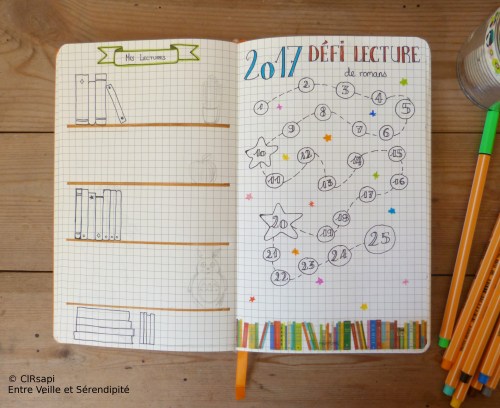 Mes Lectures
2017 DÉFI LECTURE
de romans
1 2 3 4 5
9 8 7 6
10 12 14 15
11 13 17 16
20 19 18
21 22 23 24 25
© ClRsapi
Entre Veille et Sérendipité